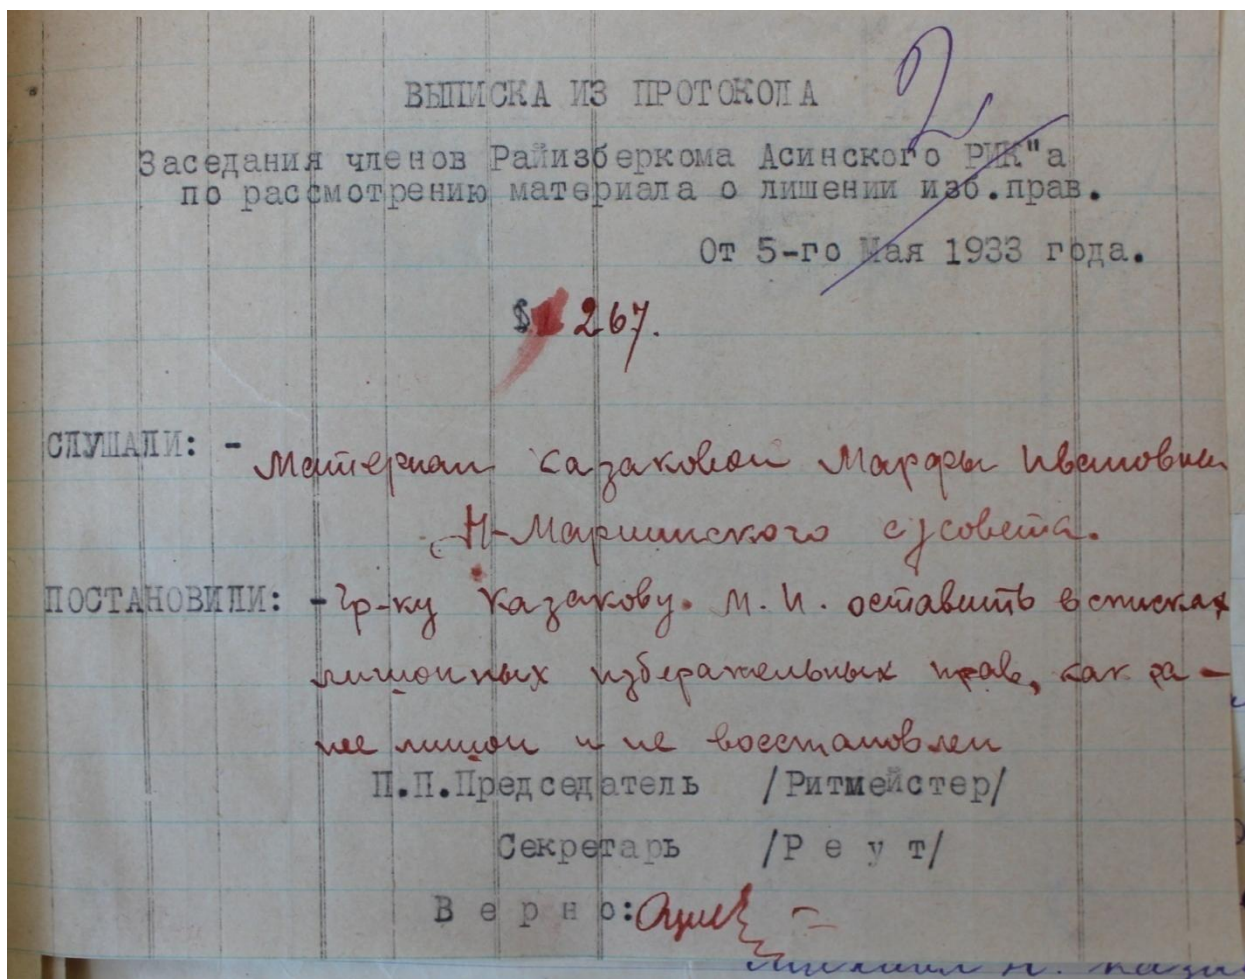 2
ВЫПИСКА ИЗ ПРОТОКОЛА
Заседания членов Райизберкома Асинского РИК"а
по рассмотрению материала о лишении изб.прав.
От 5-го Мая 1933 года.
§ 267.
СЛУШАЛИ: - Материал Казаковой Марфы Ивановны
Н-Мариинского с/совета.
ПОСТАНОВИЛИ: - Гр-ку Казакову. М. И. оставить в списках
лишонных избирательных прав, как ра-
нее лишон и не восстановлен
П.П.Председатель /Ритмейстер/
Секретарь /Р е у т/
В е р н о: